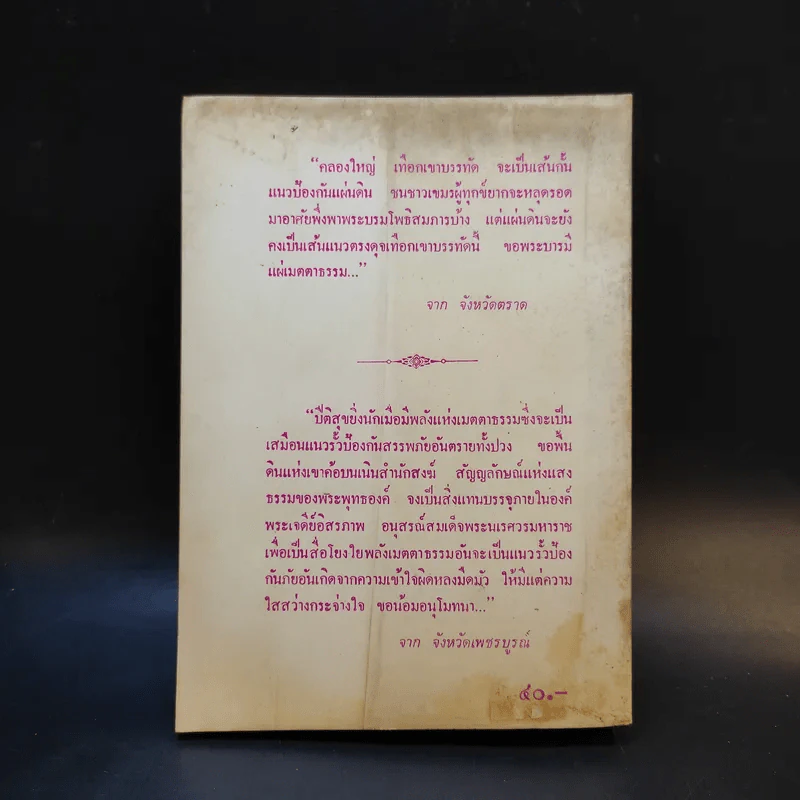 “คลองใหญ่ เทือกเขาบรรทัด จะเป็นเส้นกั้น
แนวป้องกันแผ่นดิน ชนชาวเขมรผู้ทุกข์ยากจะหลุดรอด
มาอาศัยพึ่งพาพระบรมโพธิสมภารบ้าง แต่แผ่นดินจะยัง
คงเป็นเส้นแนวตรงดุจเทือกเขาบรรทัดนี้ ขอพระบารมี
แผ่เมตตาธรรม...”
จาก จังหวัดตราด
“ปีติสุขยิ่งนักเมื่อมีพลังแห่งเมตตาธรรมซึ่งจะเป็น
เสมือนแนวรั้วป้องกันสรรพภัยอันตรายทั้งปวง ขอพื้น
ดินแห่งเขาค้อบนเนินสำนักสงฆ์ สัญญลักษณ์แห่งแสง
ธรรมของพระพุทธองค์ จงเป็นสิ่งแทนบรรจุภายในองค์
พระเจดีย์อิสรภาพ อนุสรณ์สมเด็จพระนเรศวรมหาราช
เพื่อเป็นสื่อโยงใยพลังเมตตาธรรมอันจะเป็นแนวรั้วป้อง
กันภัยอันเกิดจากความเข้าใจผิดหลงมืดมัว ให้มีแต่ความ
ใสสว่างกระจ่างใจ ขอน้อมอนุโมทนา...”
จาก จังหวัดเพชรบูรณ์
๔๐.–